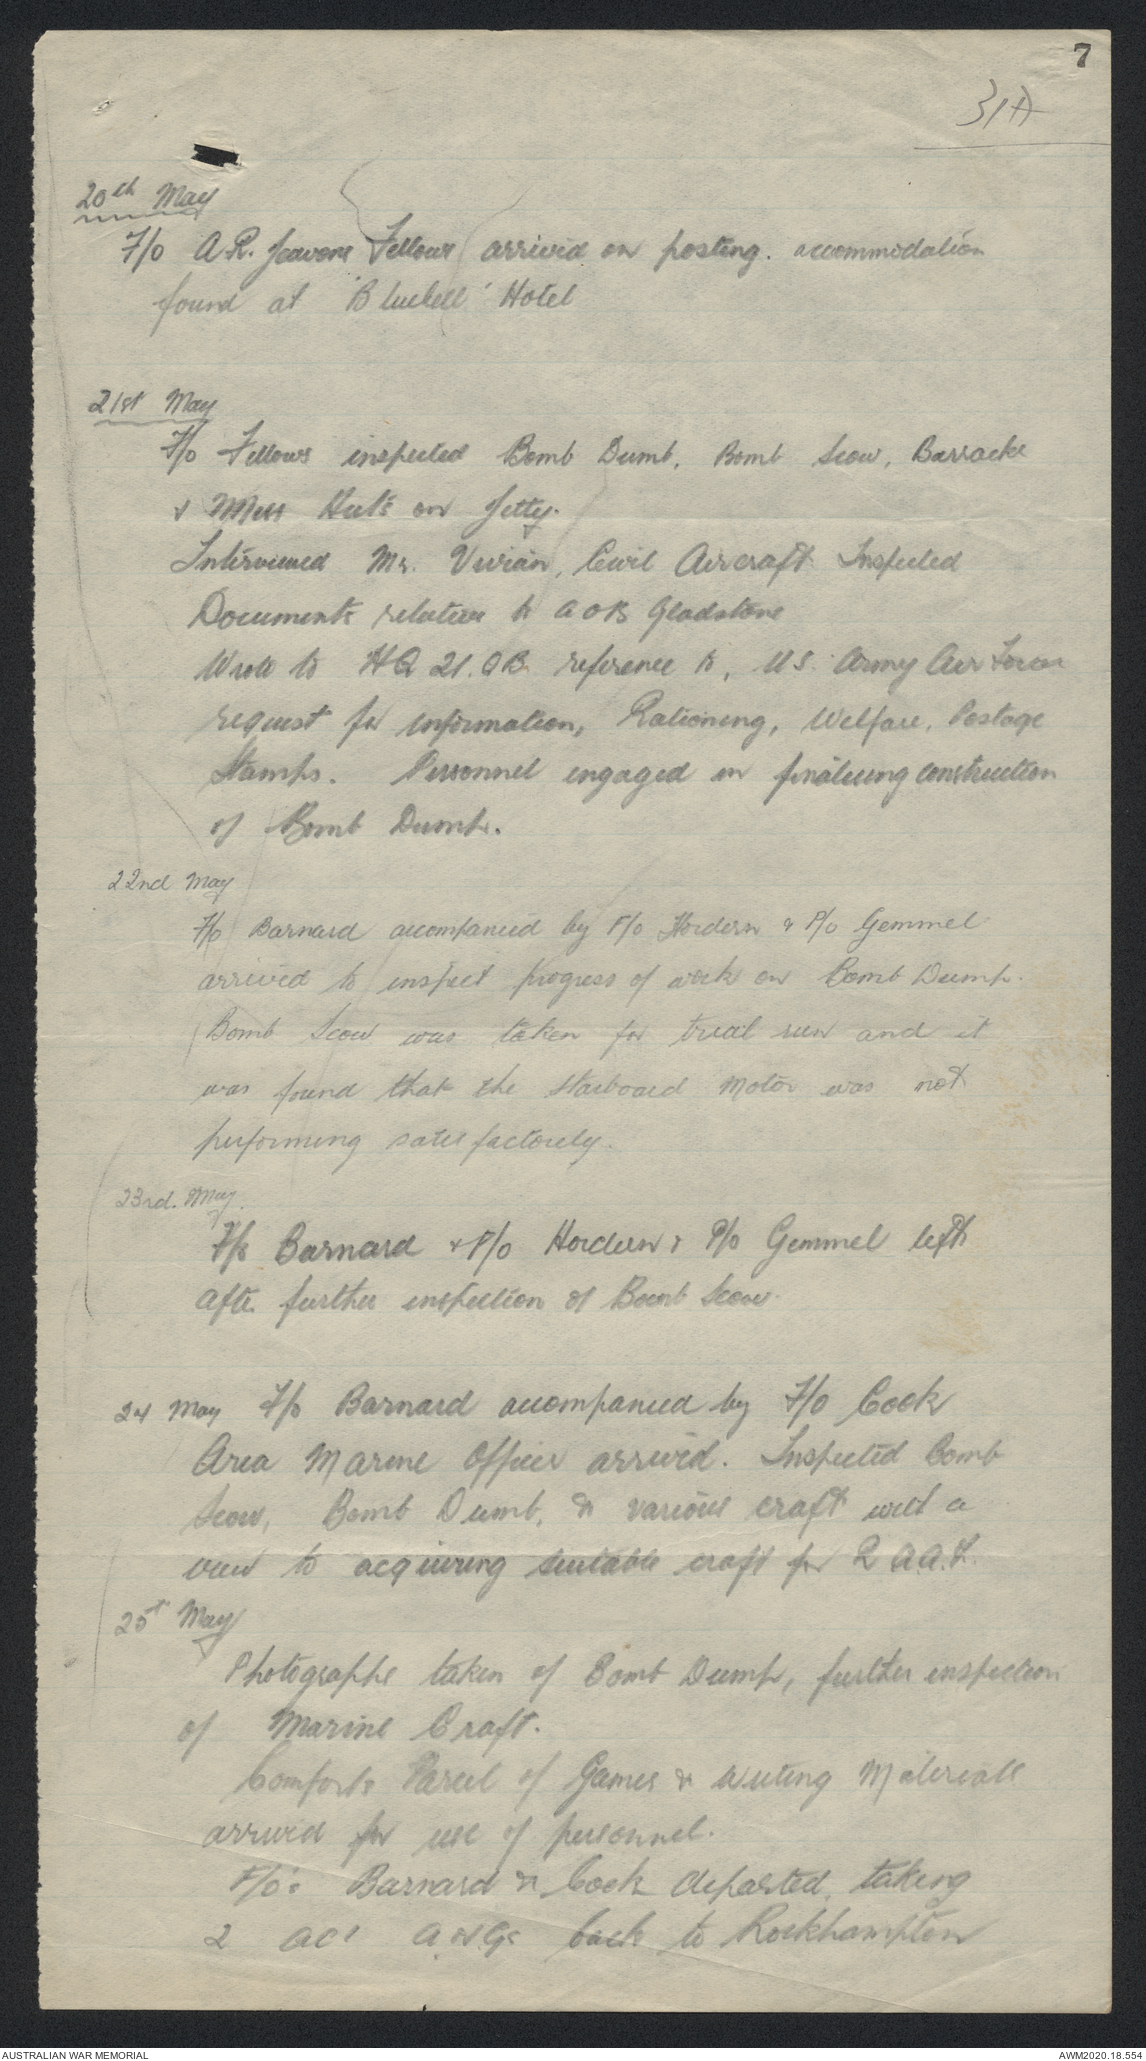 7
31A
20th May
F/o A.R. Fellows arrived on posting. accommodation
found at 'Bluebell' Hotel
21st May
F/o Fellows inspected Bomb Dumb, Bomb Scow, Barracks
& Mess Huts on Jetty.
Interviewed Mr. Vivian, Civil Aircraft Inspected
Documents relative to AOB Gladstone
Wrote to HQ 21.OB reference to, U.S. Army Air Force
request for information, Rationing, Welfare, Postage
Stamps. Personnel engaged in finalising construction
of Bomb Dump.
22nd May
F/o Barnard accompanied by F/o Hordern & P/o Gemmel
arrived to inspect progress of work on Bomb Dump.
Bomb Scow was taken for trial run and it
was found that the Starboard Motor was not
performing satisfactorily.
23rd. May.
F/o Barnard & F/o Hordern & P/o Gemmel left
after further inspection of Bomb Scow.
24 May F/o Barnard accompanied by F/o Cook
Area Marine Officer arrived. Inspected Bomb
Scow, Bomb Dumb, & various craft with a
view to acquiring suitable craft for R.A.A.F.
25t May
Photographs taken of Bomb Dump, further inspection
of Marine Craft.
Comforts Parcel of Games & Writing Materials
arrived for use of personnel.
F/o's Barnard & Cook departed, taking
2 AC1 back to Rockhampton
AUSTRALIAN WAR MEMORIAL
AWM2020.18.554